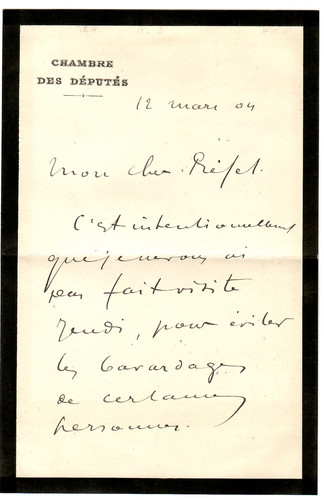 CHAMBRE
DES DÉPUTÉS
12 mars 04
Mon cher Préfet.
C'est intentionnellement
que je ne vous ai
pas fait visite
Jeudi, pour éviter
les bavardages
de certaines
personnes.